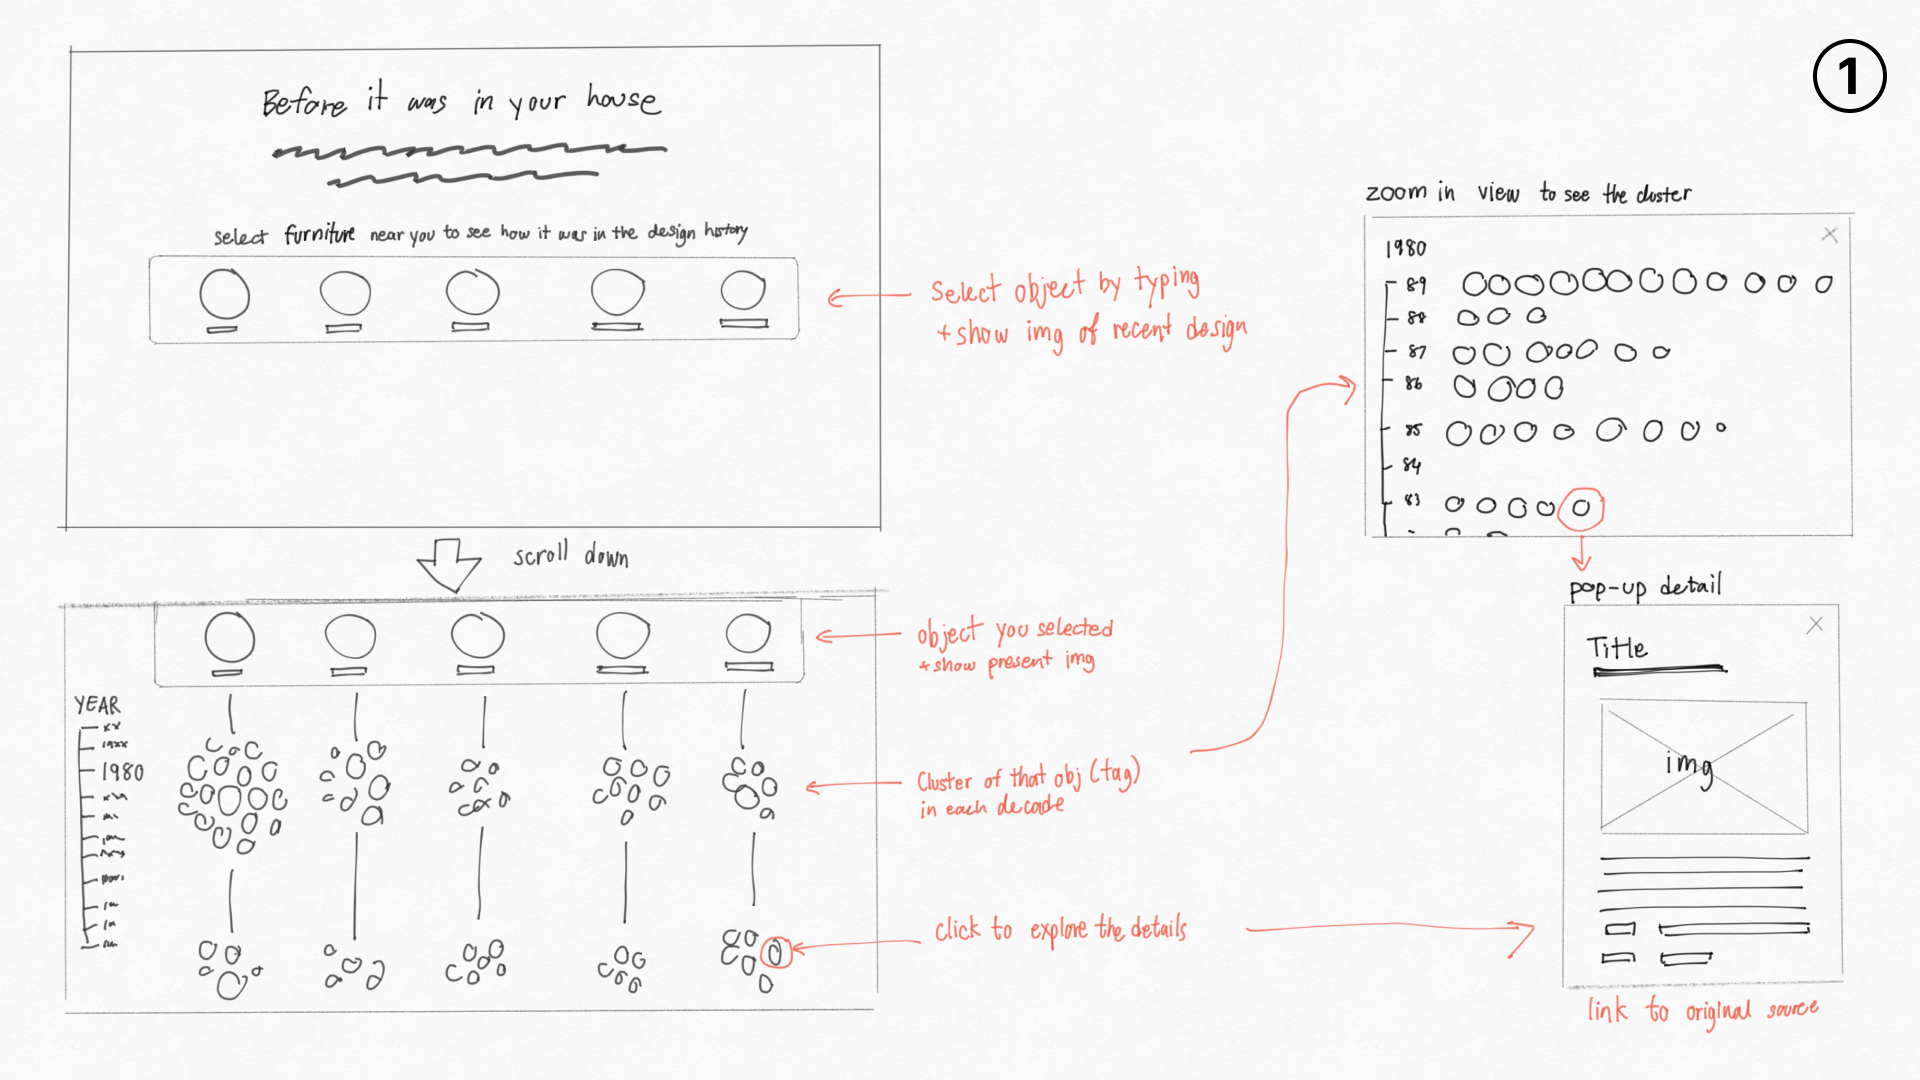 1
Before it was in your house
select furniture near you to see how it was in the design history
Select object by typing
+ show img of recent design
scroll down
object you selected
+ show present img
YEAR
xx
19xx
1980
Cluster of that obj (tag)
in each decade
click to explore the details
zoom in view to see the cluster
1980
89
88
87
86
85
84
83
pop-up detail
Title
img
link to original source